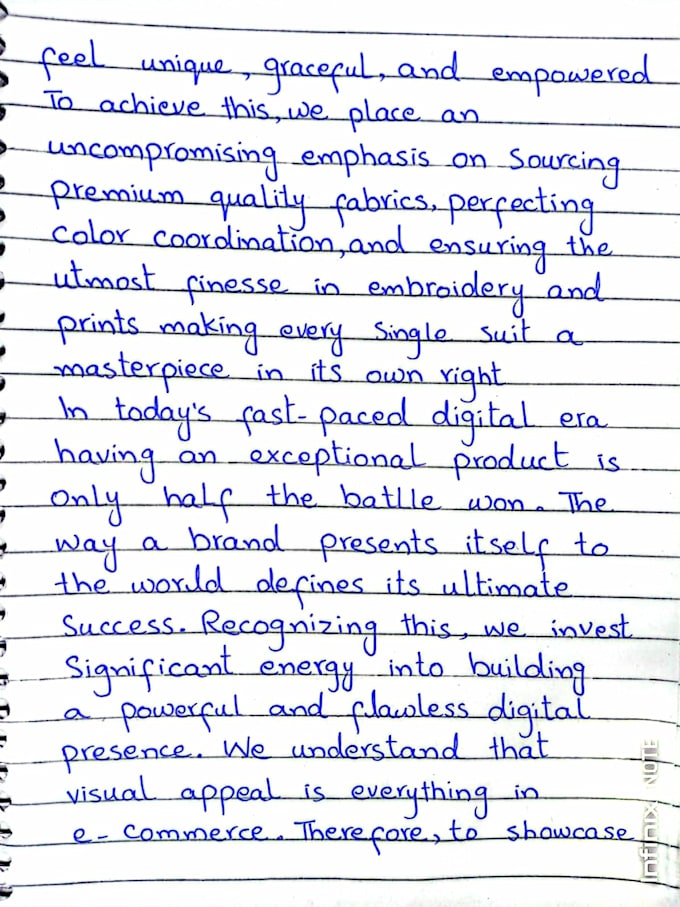 feel unique, graceful, and empowered
To achieve this, we place an
uncompromising emphasis on sourcing
premium quality fabrics, perfecting
color coordination, and ensuring the
utmost finesse in embroidery and
prints making every single suit a
masterpiece in its own right
In today's fast-paced digital era
having an exceptional product is
only half the batlle won. The
way a brand presents itself to
the world defines its ultimate
Success. Recognizing this, we invest
Significant energy into building
a powerful and flawless digital
presence. We understand that
visual appeal is everything in
e-commerce. Therefore, to showcase
Infinix NOTE